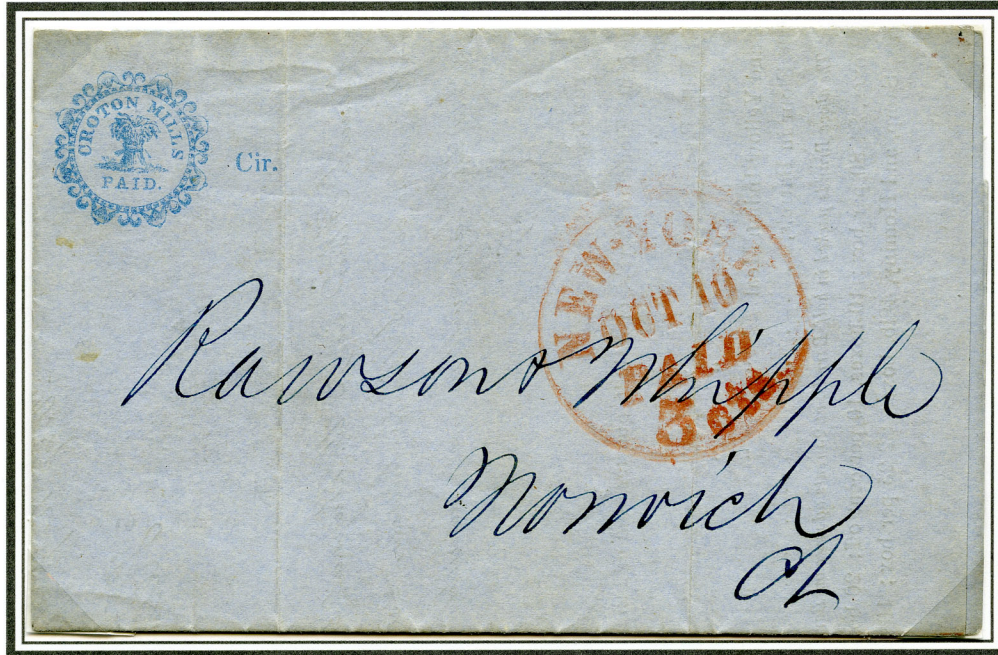 CROTON MILLS
PAID.
Cir.
NEW-YORK
OCT 10
PAID
3 cts.
Rawson & Whipple
Norwich
Ct